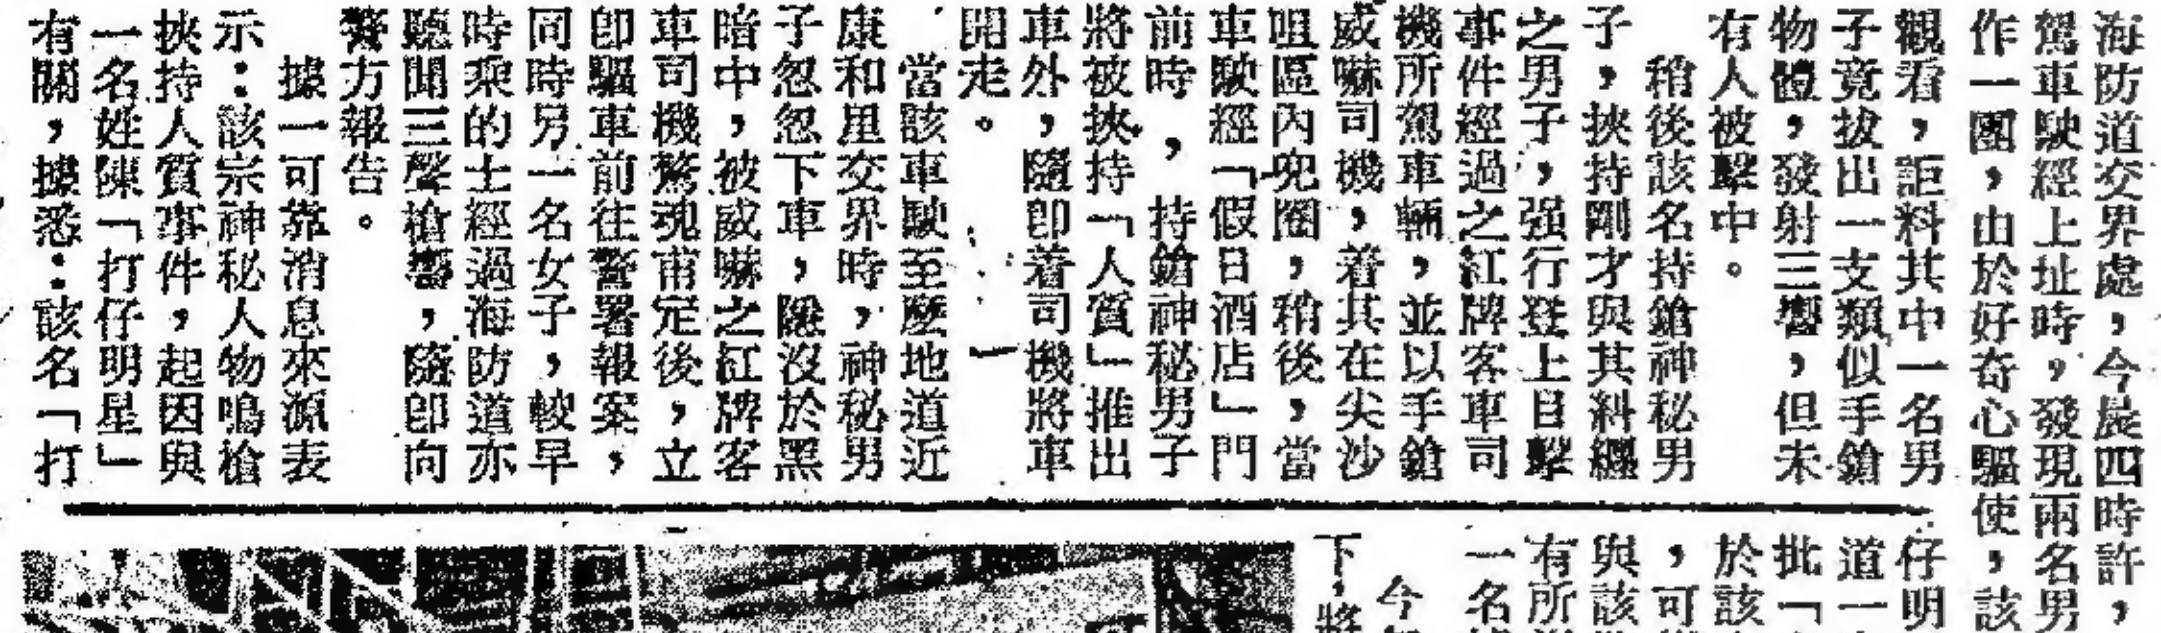 海防道交界處，今晨四時許，
駕車駛經上址時，發現兩名男
作一團，由於好奇心驅使，該
觀看，詎料其中一名男
子竟拔出一支類似手鎗
物體，發射三響，但未
有人被擊中。
稍後該名持鎗神秘男
子，挾持剛才與其糾纏
之男子，强行登上目擊
事件經過之紅牌客車司
機所駕車輛，並以手鎗
威嚇司機，着其在尖沙
咀區內兜圈，稍後，當
車駛經「假日酒店」門
前時，持鎗神秘男子
將被挾持「人質」推出
車外，隨卽着司機將車
開走。
當該車駛至麼地道近
康和里交界時，神秘男
子忽忽下車，隱沒於黑
暗中，被威嚇之紅牌客
車司機驚魂甫定後，立
卽驅車前往警署報案，
同時另一名女子，較早
時乘的士經過海防道亦
聽聞三聲槍響，隨卽向
警方報告。
據一可靠消息來源表
示：該宗神秘人物鳴槍
挾持人質事件，起因與
一名姓陳「打仔明星」
有關，據悉：該名「打
仔明
道一
批「
於該
，可
與該
有所
一名
今
下，將